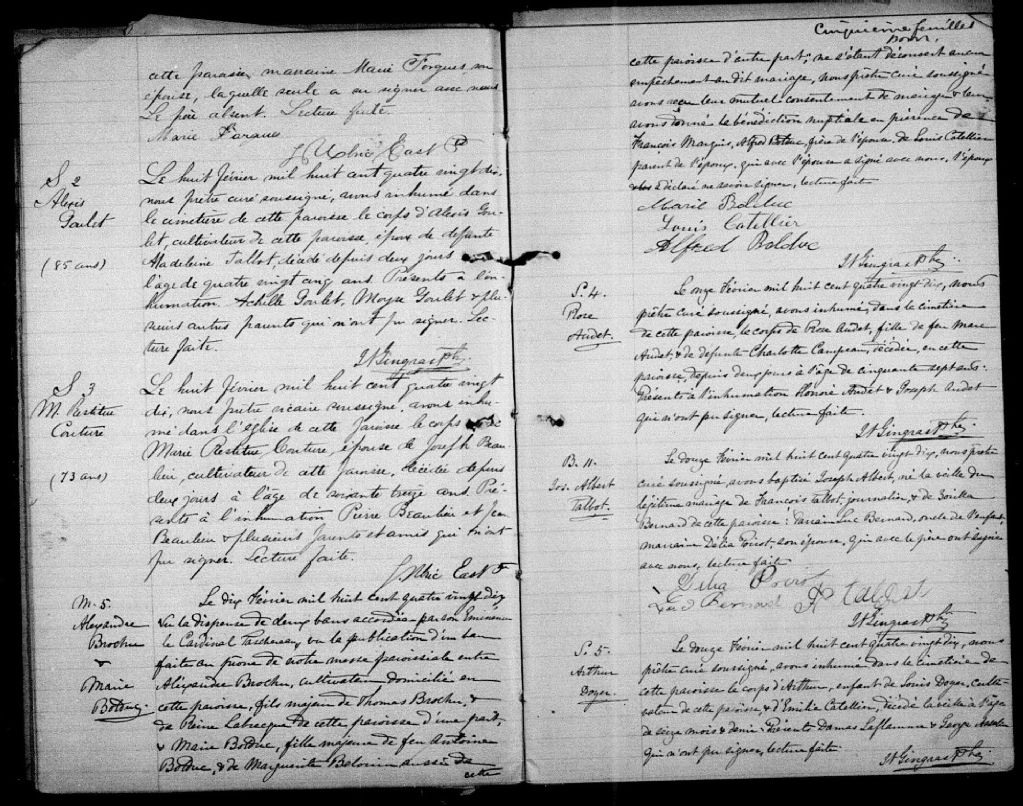 cette paroisse, marraine Marie Forgues, son
épouse, laquelle seule a su signer avec nous
Le père absent. Lecture faite.
Marie Fargues
J Ulric East P
S 2
Alexis
Goulet
(85 ans)
Le huit février mil huit cent quatre vingt dix,
nous prêtre curé soussigné, avons inhumé dans
le cimetière de cette paroisse le corps d'Alexis Gou-
let, cultivateur de cette paroisse, époux de défunte
Madeleine Talbot, décédé depuis deux jours à
l'âge de quatre vingt cinq ans. Présents à l'in-
humation Achille Goulet, Moyse Goulet & plu-
sieurs autres parents qui n'ont pu signer. Lec-
ture faite.
N Gingras Ptre
S 3
M. Restitue
Couture
(73 ans)
Le huit février mil huit cent quatre vingt
dix, nous prêtre vicaire soussigné, avons inhu-
mé dans l'église de cette paroisse le corps de
Marie Restitue Couture, épouse de Joseph Beau-
lieu, cultivateur de cette paroisse, décédée depuis
deux jours à l'âge de soixante treize ans. Pré-
sents à l'inhumation Pierre Beaulieu et
Beaulieu & plusieurs parents et amis qui n'ont
pu signer. Lecture faite.
J Ulric East P
M. 5.
Alexandre
Brochu
&
Marie
Bolduc.
Le dix Février mil huit cent quatre vingt dix
Vu la dispense de deux bans accordée par son Eminence
le Cardinal Taschereau, vu la publication d'un ban
faite au prône de notre messe paroissiale entre
Alexandre Brochu, cultivateur domicilié en
cette paroisse, fils majeur de Thomas Brochu, &
de Reine Labrecque de cette paroisse d'une part,
& Marie Bolduc, fille majeure de feu Antoine
Bolduc, & de Marguerite aussi de
cette
Cinquième feuillet
cette paroisse d'autre part; ne s'étant découvert aucun
empêchement au dit mariage, nous prêtre curé soussigné
avons reçu leur mutuel consentement de mariage & leur
avons donné la bénédiction nuptiale en présence de
François Marquis, Alfred Bolduc, frère de l'épouse, de Louis Catellier
parent de l'époux, qui avec l'épouse a signé avec nous, l'époux
a déclaré ne savoir signer, lecture faite
Marie Bolduc
Louis Catellier
Alfred Bolduc
N Gingras Ptre
S. 4.
Rose
Audet.
Le onze Février mil huit cent quatre vingt dix, nous
prêtre curé soussigné, avons inhumé, dans le cimetière
de cette paroisse, le corps de Rose Audet, fille de feu Marc
Audet, & de défunte Charlotte Campeau, décédée, en cette
paroisse, depuis deux jours à l'âge de cinquante sept ans.
Présents à l'inhumation Honoré Audet & Joseph Audet
qui n'ont pu signer, lecture faite.
N Gingras Ptre
B. 11.
Jos. Albert
Talbot.
Le douze Février mil huit cent quatre vingt dix, nous prêtre
curé soussigné, avons baptisé Joseph Albert, né la veille du
légitime mariage de François Talbot, journalier, & de
Bernard de cette paroisse: Parrain Luc Bernard, oncle de l'enfant,
marraine Délia Poirot, son épouse, qui avec le père ont signé
avec nous, lecture faite.
Luc Bernard Fr Talbot
N Gingras Ptre
S. 5.
Arthur
Doyer.
Le douze Février mil huit cent quatre vingt dix, nous
prêtre curé soussigné, avons inhumé dans le cimetière de
cette paroisse le corps d'Arthur, enfant de Louis Doyer, culti-
vateur de cette paroisse, & d'Emilie Catellier, décédé la veille à l'âge
de seize mois & demi. Présents Damas Laflamme & George
qui n'ont pu signer, lecture faite.
N Gingras Ptre